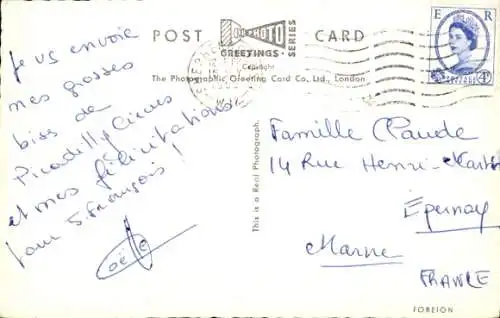 Je vs envoie
mes grosses
bises de
Picadilly Circus
et mes félicitations
pour S. François !
POST CARD
PHOTO
GREETINGS
SERIES
Copyright
The Photographic Greeting Card Co., Ltd., London
This is a Real Photograph.
E R
POSTAGE
4D
Famille Claude
14 Rue Henri-Martin
Épernay
Marne
FRANCE
FOREIGN